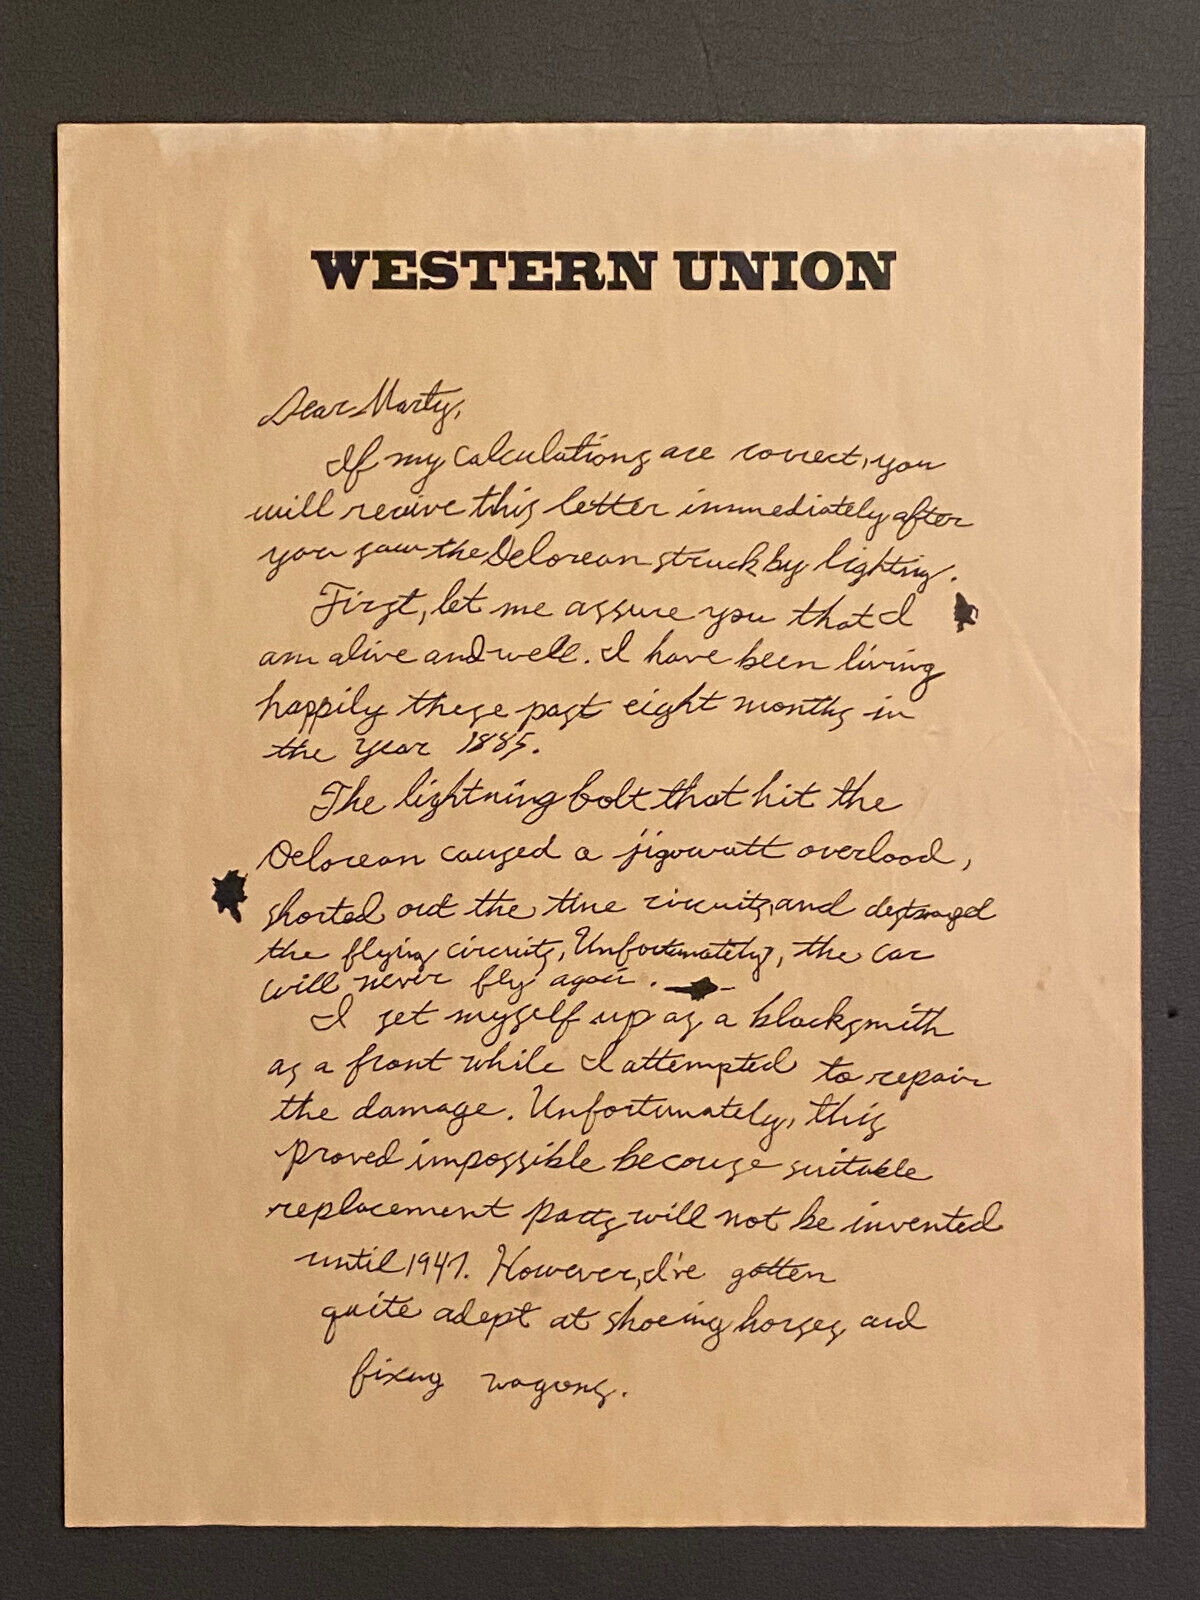 WESTERN UNION
Dear Marty,
If my calculations are correct, you
will recieve this letter immediately after
you saw the Delorean struck by lighting.
First, let me assure you that I
am alive and well. I have been living
happily these past eight months in
the year 1885.
The lightning bolt that hit the
Delorean caused a jigowatt overload,
shorted out the time circuits, and destroyed
the flying circuits, Unfortunately, the car
will never fly again.
I set myself up as a blacksmith
as a front while I attempted to repair
the damage. Unfortunately, this
proved impossible because suitable
replacement parts will not be invented
until 1947. However, I've gotten
quite adept at shoeing horses and
fixing wagons.